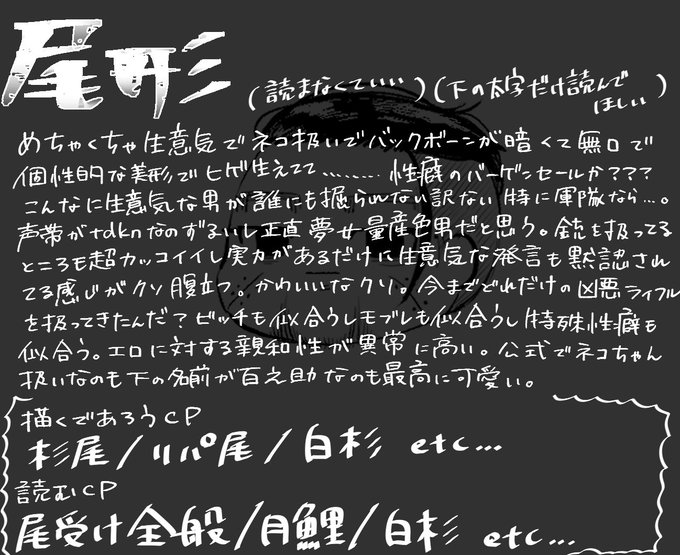 尾形
(読まなくていい)(下の太字だけ読んでほしい)
めちゃくちゃ生意気でネコ扱いでバックボーンが暗くて無口で
個性的な美形でヒゲ生えてて………性癖のバーゲンセールか???
こんなに生意気な男が誰にも掘られない訳ない特に軍隊なら…。
声帯がtdknなのずるいし正直夢女量産色男だと思う。銃を扱ってる
ところも超カッコイイし実力があるだけに生意気な発言も黙認され
てる感じがクソ腹立つ。かわいいなクソ。今までどれだけの凶悪ライフル
を扱ってきたんだ?ビッチも似合うしモブレも似合うし特殊性癖も
似合う。エロに対する親和性が異常に高い。公式でネコちゃん
扱いなのも下の名前が百之助なのも最高に可愛い。
描くであろうCP
杉尾/リパ尾/白杉 etc…
読むCP
尾受け全般/月鯉/白杉 etc…